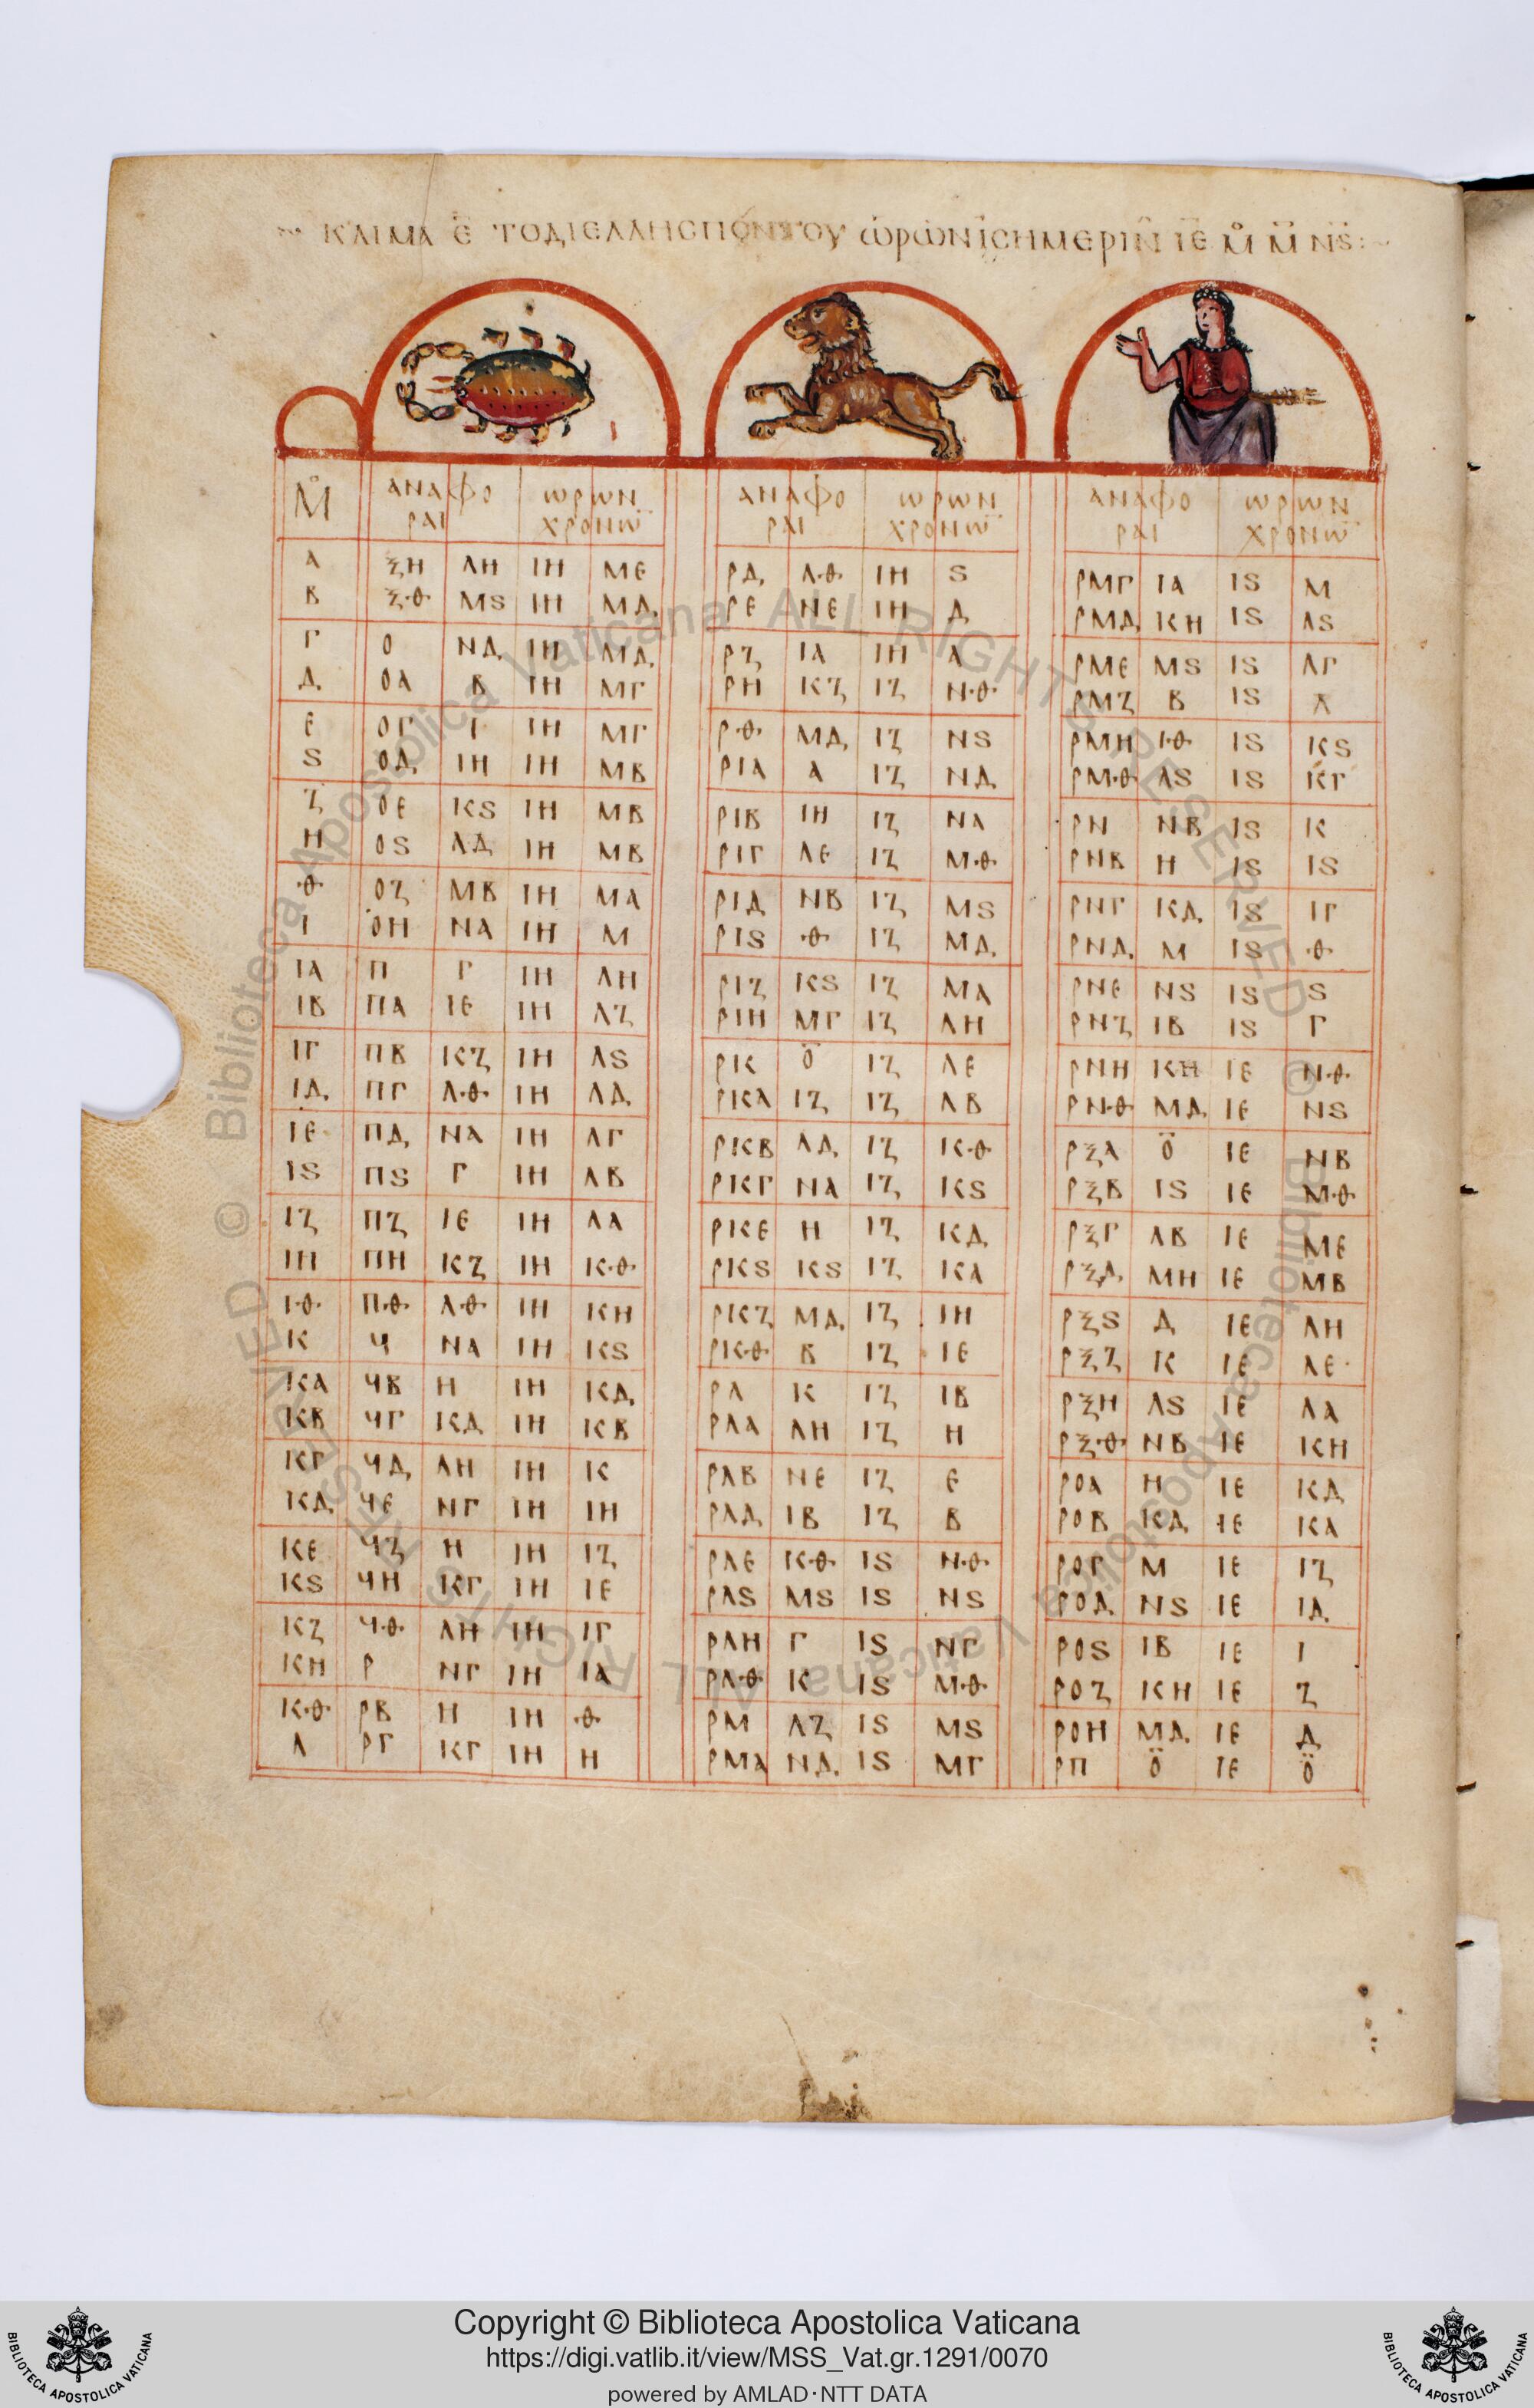 ΚΛΙΜΑ Ε̄ ΤΟ ΔΙ ΕΛΛΗϹΠΟΝΤΟΥ ΩΡΩΝ ΙϹΗΜΕΡΙΝ̄ ΙΕ̄ Μ̊ Μ̄ ΝϚ̄
Μ̊ ΑΝΑΦΟ ΩΡΩΝ ΑΝΑΦΟ ΩΡΩΝ ΑΝΑΦΟ ΩΡΩΝ
ΡΑΙ ΧΡΟΝΩ̄ ΡΑΙ ΧΡΟΝΩ̄ ΡΑΙ ΧΡΟΝΩ̄
Α ΞΗ ΛΗ ΙΗ ΜΕ ΡΔ ΛΘ ΙΗ Ϛ ΡΜΓ ΙΑ ΙϚ Μ
Β ΞΘ ΜϚ ΙΗ ΜΔ ΡΕ ΝΕ ΙΗ Δ ΡΜΔ ΚΗ ΙϚ ΛϚ
Γ Ο ΝΔ ΙΗ ΜΔ ΡΖ ΙΑ ΙΗ Α ΡΜΕ ΜϚ ΙϚ ΛΓ
Δ ΟΑ Β ΙΗ ΜΓ ΡΗ ΚΖ ΙΖ ΝΘ ΡΜΖ Β ΙϚ Λ
Ε ΟΓ Ι ΙΗ ΜΓ ΡΘ ΜΔ ΙΖ ΝϚ ΡΜΗ ΙΘ ΙϚ ΚϚ
Ϛ ΟΔ ΙΗ ΙΗ ΜΒ ΡΙΑ Α ΙΖ ΝΔ ΡΜΘ ΛϚ ΙϚ ΚΓ
Ζ ΟΕ ΚϚ ΙΗ ΜΒ ΡΙΒ ΙΗ ΙΖ ΝΑ ΡΝ ΝΒ ΙϚ Κ
Η ΟϚ ΛΔ ΙΗ ΜΒ ΡΙΓ ΛΕ ΙΖ ΜΘ ΡΝΒ Η ΙϚ ΙϚ
Θ ΟΖ ΜΒ ΙΗ ΜΑ ΡΙΔ ΝΒ ΙΖ ΜϚ ΡΝΓ ΚΔ ΙϚ ΙΓ
Ι ΟΗ ΝΑ ΙΗ Μ ΡΙϚ Θ ΙΖ ΜΔ ΡΝΔ Μ ΙϚ Θ
ΙΑ Π Γ ΙΗ ΛΗ ΡΙΖ ΚϚ ΙΖ ΜΑ ΡΝΕ ΝϚ ΙϚ Ϛ
ΙΒ ΠΑ ΙΕ ΙΗ ΛΖ ΡΙΗ ΜΓ ΙΖ ΛΗ ΡΝΖ ΙΒ ΙϚ Γ
ΙΓ ΠΒ ΚΖ ΙΗ ΛϚ ΡΚ Ο̈ ΙΖ ΛΕ ΡΝΗ ΚΗ ΙΕ ΝΘ
ΙΔ ΠΓ ΛΘ ΙΗ ΛΔ ΡΚΑ ΙΖ ΙΖ ΛΒ ΡΝΘ ΜΔ ΙΕ ΝϚ
ΙΕ ΠΔ ΝΑ ΙΗ ΛΓ ΡΚΒ ΛΔ ΙΖ ΚΘ ΡΞΑ Ο̈ ΙΕ ΝΒ
ΙϚ ΠϚ Γ ΙΗ ΛΒ ΡΚΓ ΝΑ ΙΖ ΚϚ ΡΞΒ ΙϚ ΙΕ ΜΘ
ΙΖ ΠΖ ΙΕ ΙΗ ΛΑ ΡΚΕ Η ΙΖ ΚΔ ΡΞΓ ΛΒ ΙΕ ΜΕ
ΙΗ ΠΗ ΚΖ ΙΗ ΚΘ ΡΚϚ ΚϚ ΙΖ ΚΑ ΡΞΔ ΜΗ ΙΕ ΜΒ
ΙΘ ΠΘ ΛΘ ΙΗ ΚΗ ΡΚΖ ΜΔ ΙΖ ΙΗ ΡΞϚ Δ ΙΕ ΛΗ
Κ Ϟ ΝΑ ΙΗ ΚϚ ΡΚΘ Β ΙΖ ΙΕ ΡΞΖ Κ ΙΕ ΛΕ
ΚΑ ϞΒ Η ΙΗ ΚΔ ΡΛ Κ ΙΖ ΙΒ ΡΞΗ ΛϚ ΙΕ ΛΑ
ΚΒ ϞΓ ΚΔ ΙΗ ΚΒ ΡΛΑ ΛΗ ΙΖ Η ΡΞΘ ΝΒ ΙΕ ΚΗ
ΚΓ ϞΔ ΛΗ ΙΗ Κ ΡΛΒ ΝΕ ΙΖ Ε ΡΟΑ Η ΙΕ ΚΔ
ΚΔ ϞΕ ΝΓ ΙΗ ΙΗ ΡΛΔ ΙΒ ΙΖ Β ΡΟΒ ΚΔ ΙΕ ΚΑ
ΚΕ ϞΖ Η ΙΗ ΙΖ ΡΛΕ ΚΘ ΙϚ ΝΘ ΡΟΓ Μ ΙΕ ΙΖ
ΚϚ ϞΗ ΚΓ ΙΗ ΙΕ ΡΛϚ ΜϚ ΙϚ ΝϚ ΡΟΔ ΝϚ ΙΕ ΙΔ
ΚΖ ϞΘ ΛΗ ΙΗ ΙΓ ΡΛΗ Γ ΙϚ ΝΓ ΡΟϚ ΙΒ ΙΕ Ι
ΚΗ Ρ ΝΓ ΙΗ ΙΑ ΡΛΘ Κ ΙϚ ΜΘ ΡΟΖ ΚΗ ΙΕ Ζ
ΚΘ ΡΒ Η ΙΗ Θ ΡΜ ΛΖ ΙϚ ΜϚ ΡΟΗ ΜΔ ΙΕ Δ
Λ ΡΓ ΚΓ ΙΗ Η ΡΜΑ ΝΔ ΙϚ ΜΓ ΡΠ Ο̈ ΙΕ Ο̈
© Biblioteca Apostolica Vaticana ALL RIGHTS RESERVED © Biblioteca Apostolica Vaticana ALL RIGHTS RESERVED
Copyright © Biblioteca Apostolica Vaticana
https://digi.vatlib.it/view/MSS_Vat.gr.1291/0070
powered by AMLAD·NTT DATA
BIBLIOTECA APOSTOLICA VATICANA
BIBLIOTECA APOSTOLICA VATICANA